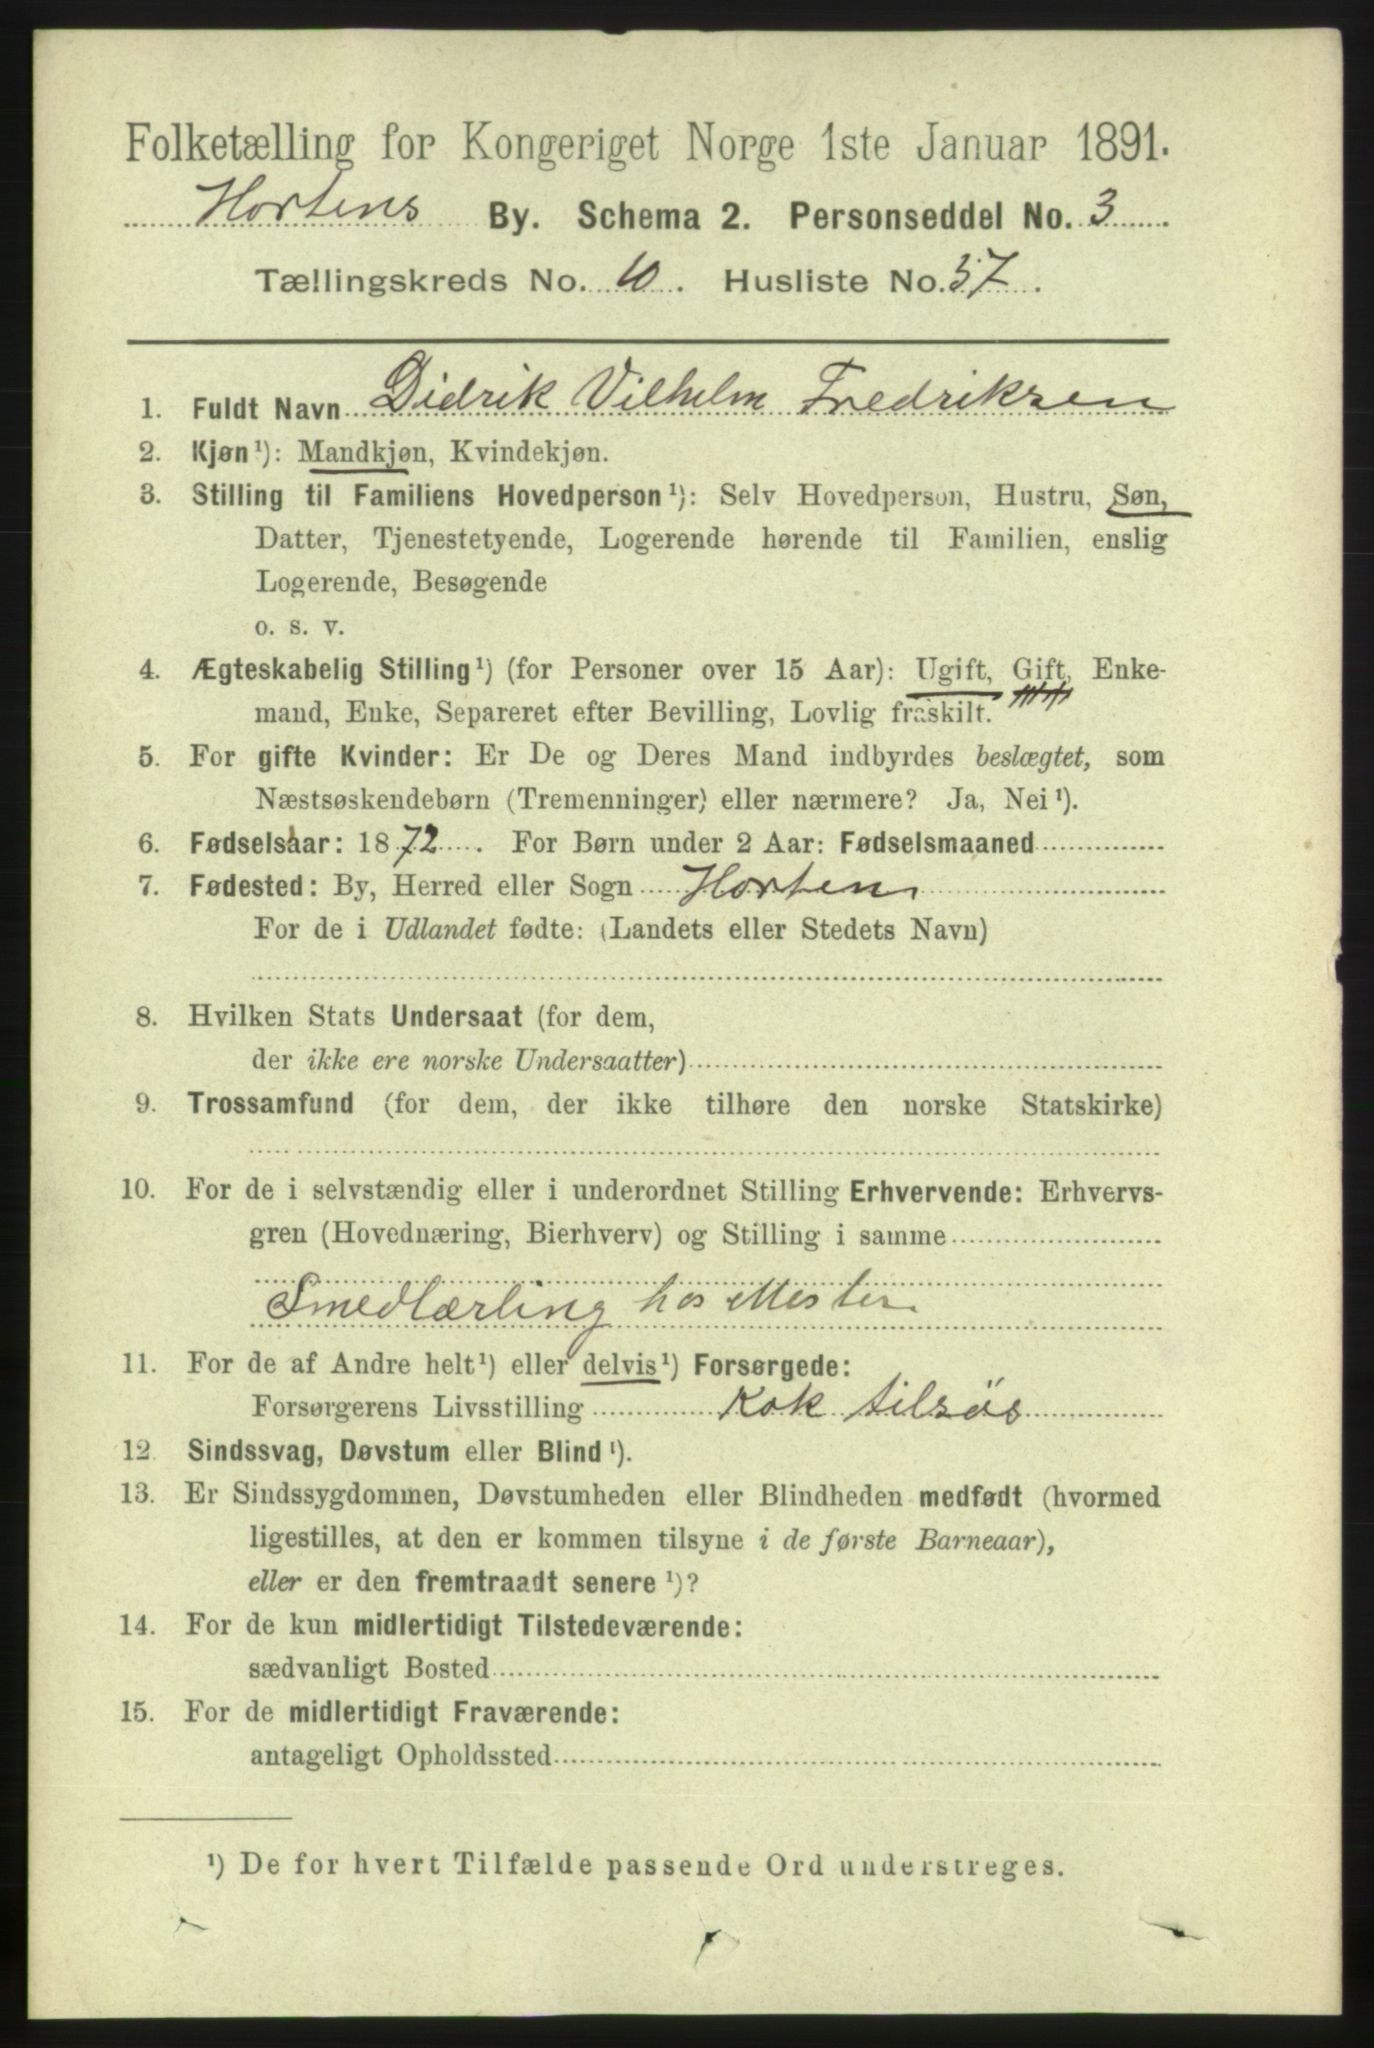 Folketælling for Kongeriget Norge 1ste Januar 1891.
Hortens By. Schema 2. Personseddel No. 3
Tællingskreds No. 10. Husliste No. 37.
1. Fuldt Navn Didrik Vilhelm Fredriksen
2. Kjøn¹): Mandkjøn, Kvindekjøn.
3. Stilling til Familiens Hovedperson¹): Selv Hovedperson, Hustru, Søn,
Datter, Tjenestetyende, Logerende hørende til Familien, enslig
Logerende, Besøgende
o. s. v.
4. Ægteskabelig Stilling¹) (for Personer over 15 Aar): Ugift, Gift, Enke-
mand, Enke, Separeret efter Bevilling, Lovlig fraskilt.
5. For gifte Kvinder: Er De og Deres Mand indbyrdes beslægtet, som
Næstsøskendebørn (Tremenninger) eller nærmere? Ja, Nei¹).
6. Fødselsaar: 1872. For Børn under 2 Aar: Fødselsmaaned
7. Fødested: By, Herred eller Sogn Horten
For de i Udlandet fødte: (Landets eller Stedets Navn)
8. Hvilken Stats Undersaat (for dem,
der ikke ere norske Undersaatter)
9. Trossamfund (for dem, der ikke tilhøre den norske Statskirke)
10. For de i selvstændig eller i underordnet Stilling Erhvervende: Erhvervs-
gren (Hovednæring, Bierhverv) og Stilling i samme
Smedlærling hos Mester
11. For de af Andre helt¹) eller delvis¹) Forsørgede:
Forsørgerens Livsstilling Kok tilsøs
12. Sindssvag, Døvstum eller Blind¹).
13. Er Sindssygdommen, Døvstumheden eller Blindheden medfødt (hvormed
ligestilles, at den er kommen tilsyne i de første Barneaar),
eller er den fremtraadt senere¹)?
14. For de kun midlertidigt Tilstedeværende:
sædvanligt Bosted
15. For de midlertidigt Fraværende:
antageligt Opholdssted
¹) De for hvert Tilfælde passende Ord understreges.